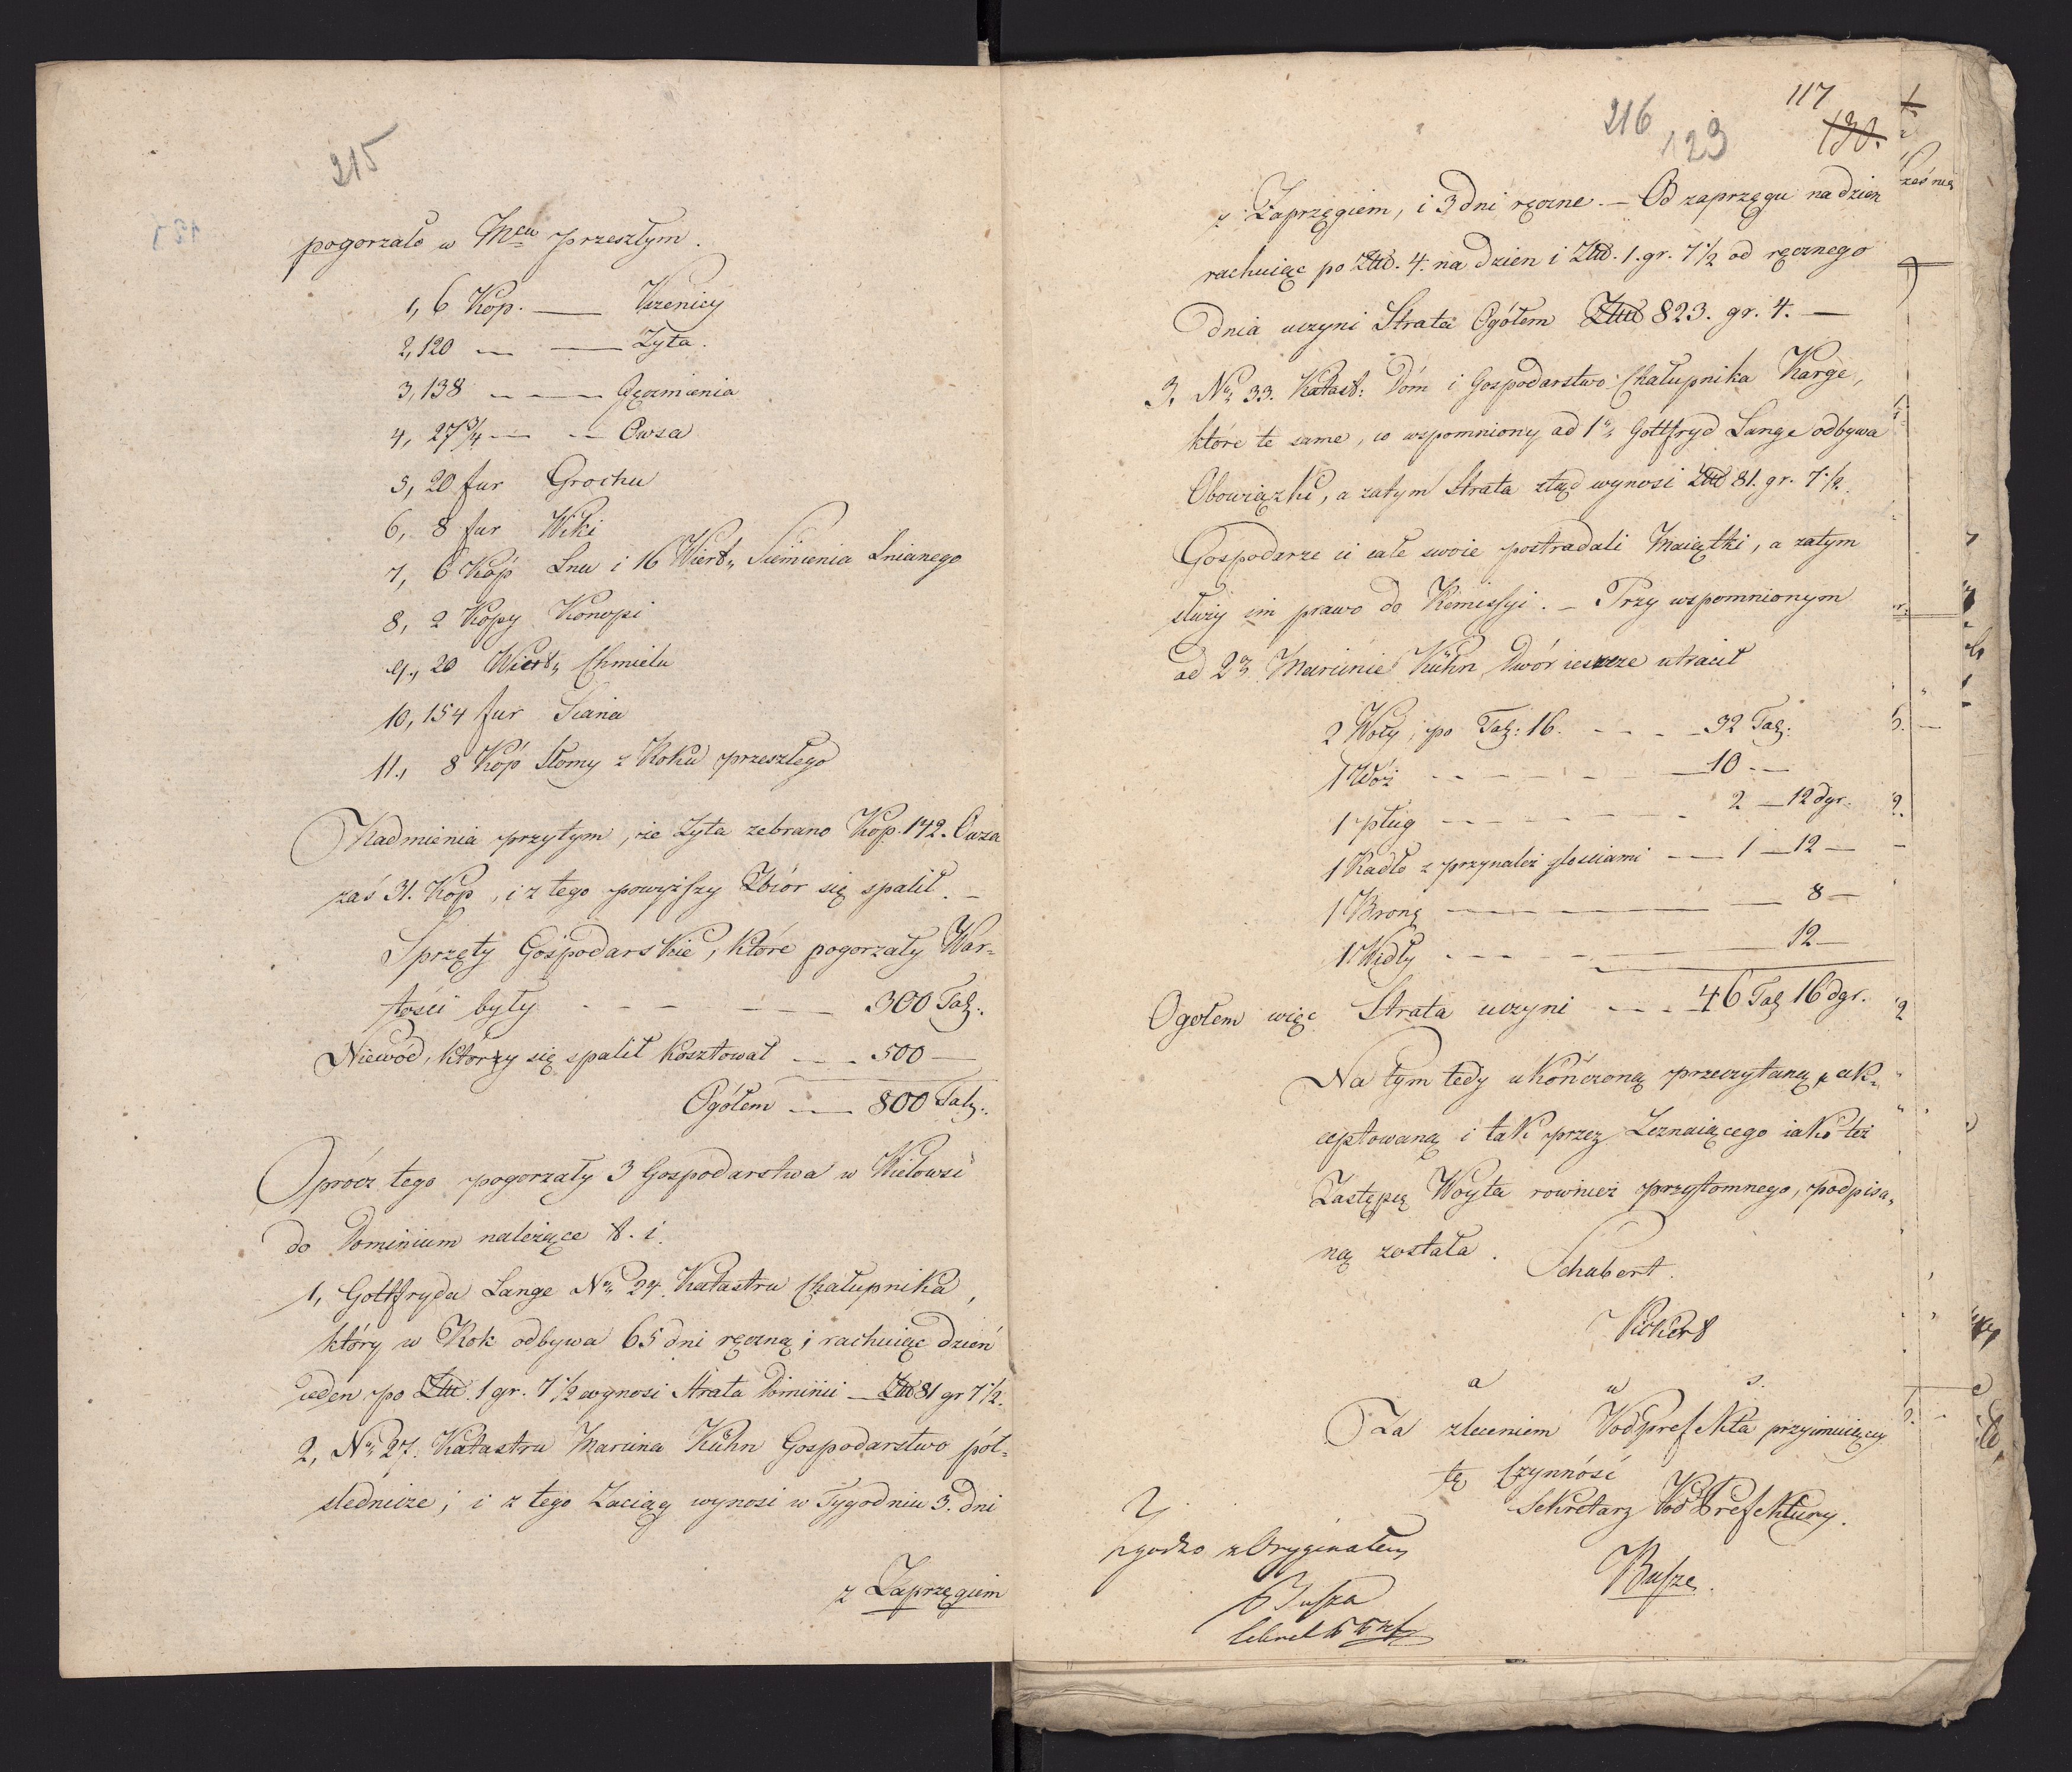 215
pogorzało w Mcu przeszłym.
1, 6 Kop. — Pszenicy
2, 120 — — Zyta.
3, 138 — — Jęczmienia
4, 27¾ — — Owsa
5, 20 fur Grochu
6, 8 fur Wiki
7, 6 Kóp Lnu i 16 Wiert„ Siemienia Lnianego
8, 2 Kopy Konopi
9., 20 Wiert„ Chmielu
10, 154 fur Siana
11., 8 Kóp Słomy z Roku przeszłego
Nadmienia przytym, że Zyta zebrano Kop. 142. Owsa
zaś 31. Kop, i z tego powyższy Zbiór się spalił. —
Sprzęty Gospodarskie, które pogorzały War-
tości były — — — 300 Tal:.
Niewód, który się spalił kosztował — — 500 —
Ogółem — 800 Tal:.
Oprócz tego pogorzały 3 Gospodarstwa w Wielowsi
do Dominium należące t. i.
1, Gottfryda Lange No 24. Katastru Chałupnika,
który w Rok odbywa 65 dni ręczną; rachuiąc dzień
ieden po Złł. 1 gr. 7½ wynosi Strata Dominii — Złł 81 gr 7½.
2, No 27. Katastru Marcina Kühn Gospodarstwo pół-
slednicze; i z tego Zaciąg wynosi w Tygodniu 3. dni
z Zaprzęgiem
117
216
123
130.
z Zaprzęgiem, i 3 dni ręczne. — Od zaprzęgu na dzień
rachuiąc po Złł. 4. na dzien i Złł. 1. gr. 7½ od ręcznego
dnia uczyni Strata Ogółem Złł 823. gr. 4. —
3, No 33. Katast: Dóm i Gospodarstwo Chałupnika Karge,
które te same, co wspomniony ad 1o, Gottfryd Lange odbywa
Obowiązki, a zatym Strata ztąd wynosi Złł 81. gr. 7½.
Gospodarze ci całe swoie postradali Maiątki, a zatym
służy im prawo do Remissyi. — Przy wspomnionym
ad 2o, Marcinie Kühn Dwór ieszcze utracił
2 Woły, po Tal: 16. — — — 32 Tal:
1 Wóz — — — — 10 —
1 pług — — — — 2. — 12 dgr.
1 Radło z przynależytościami — 1 — 12 —
1 Bronę — — — — 8 —
1 Widły — — — — 12 —
Ogółem więc Strata uczyni — — 46 Tal 16 dgr.
Na tym tedy ukończoną przeczytaną, ak-
ceptowaną i tak przez Zeznaiącego iako też
Zastępcę Woyta rownież przytomnego, podpisa-
ną została.
Schubert.
a u s.
Za zleceniem Podprefekta przyimuiący
tę Czynność
Sekretarz PodPrefektury.
Busze.
Zgodno z Oryginałem
Busze